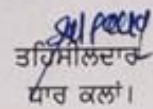 ਤਹਿਸੀਲਦਾਰ
ਧਾਰ ਕਲਾਂ।